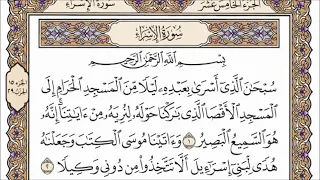 الجزء الخامس عشر
سورة الإسراء
سُورَةُ الإِسْرَاءِ
بِسْمِ اللَّهِ الرَّحْمَٰنِ الرَّحِيمِ
سُبْحَٰنَ ٱلَّذِىٓ أَسْرَىٰ بِعَبْدِهِۦ لَيْلًا مِّنَ ٱلْمَسْجِدِ ٱلْحَرَامِ إِلَى
ٱلْمَسْجِدِ ٱلْأَقْصَا ٱلَّذِى بَٰرَكْنَا حَوْلَهُۥ لِنُرِيَهُۥ مِنْ ءَايَٰتِنَآ إِنَّهُۥ
هُوَ ٱلسَّمِيعُ ٱلْبَصِيرُ ١ وَءَاتَيْنَا مُوسَى ٱلْكِتَٰبَ وَجَعَلْنَٰهُ
هُدًى لِّبَنِىٓ إِسْرَٰٓءِيلَ أَلَّا تَتَّخِذُوا۟ مِن دُونِى وَكِيلًا ٢
الجزء ١٥